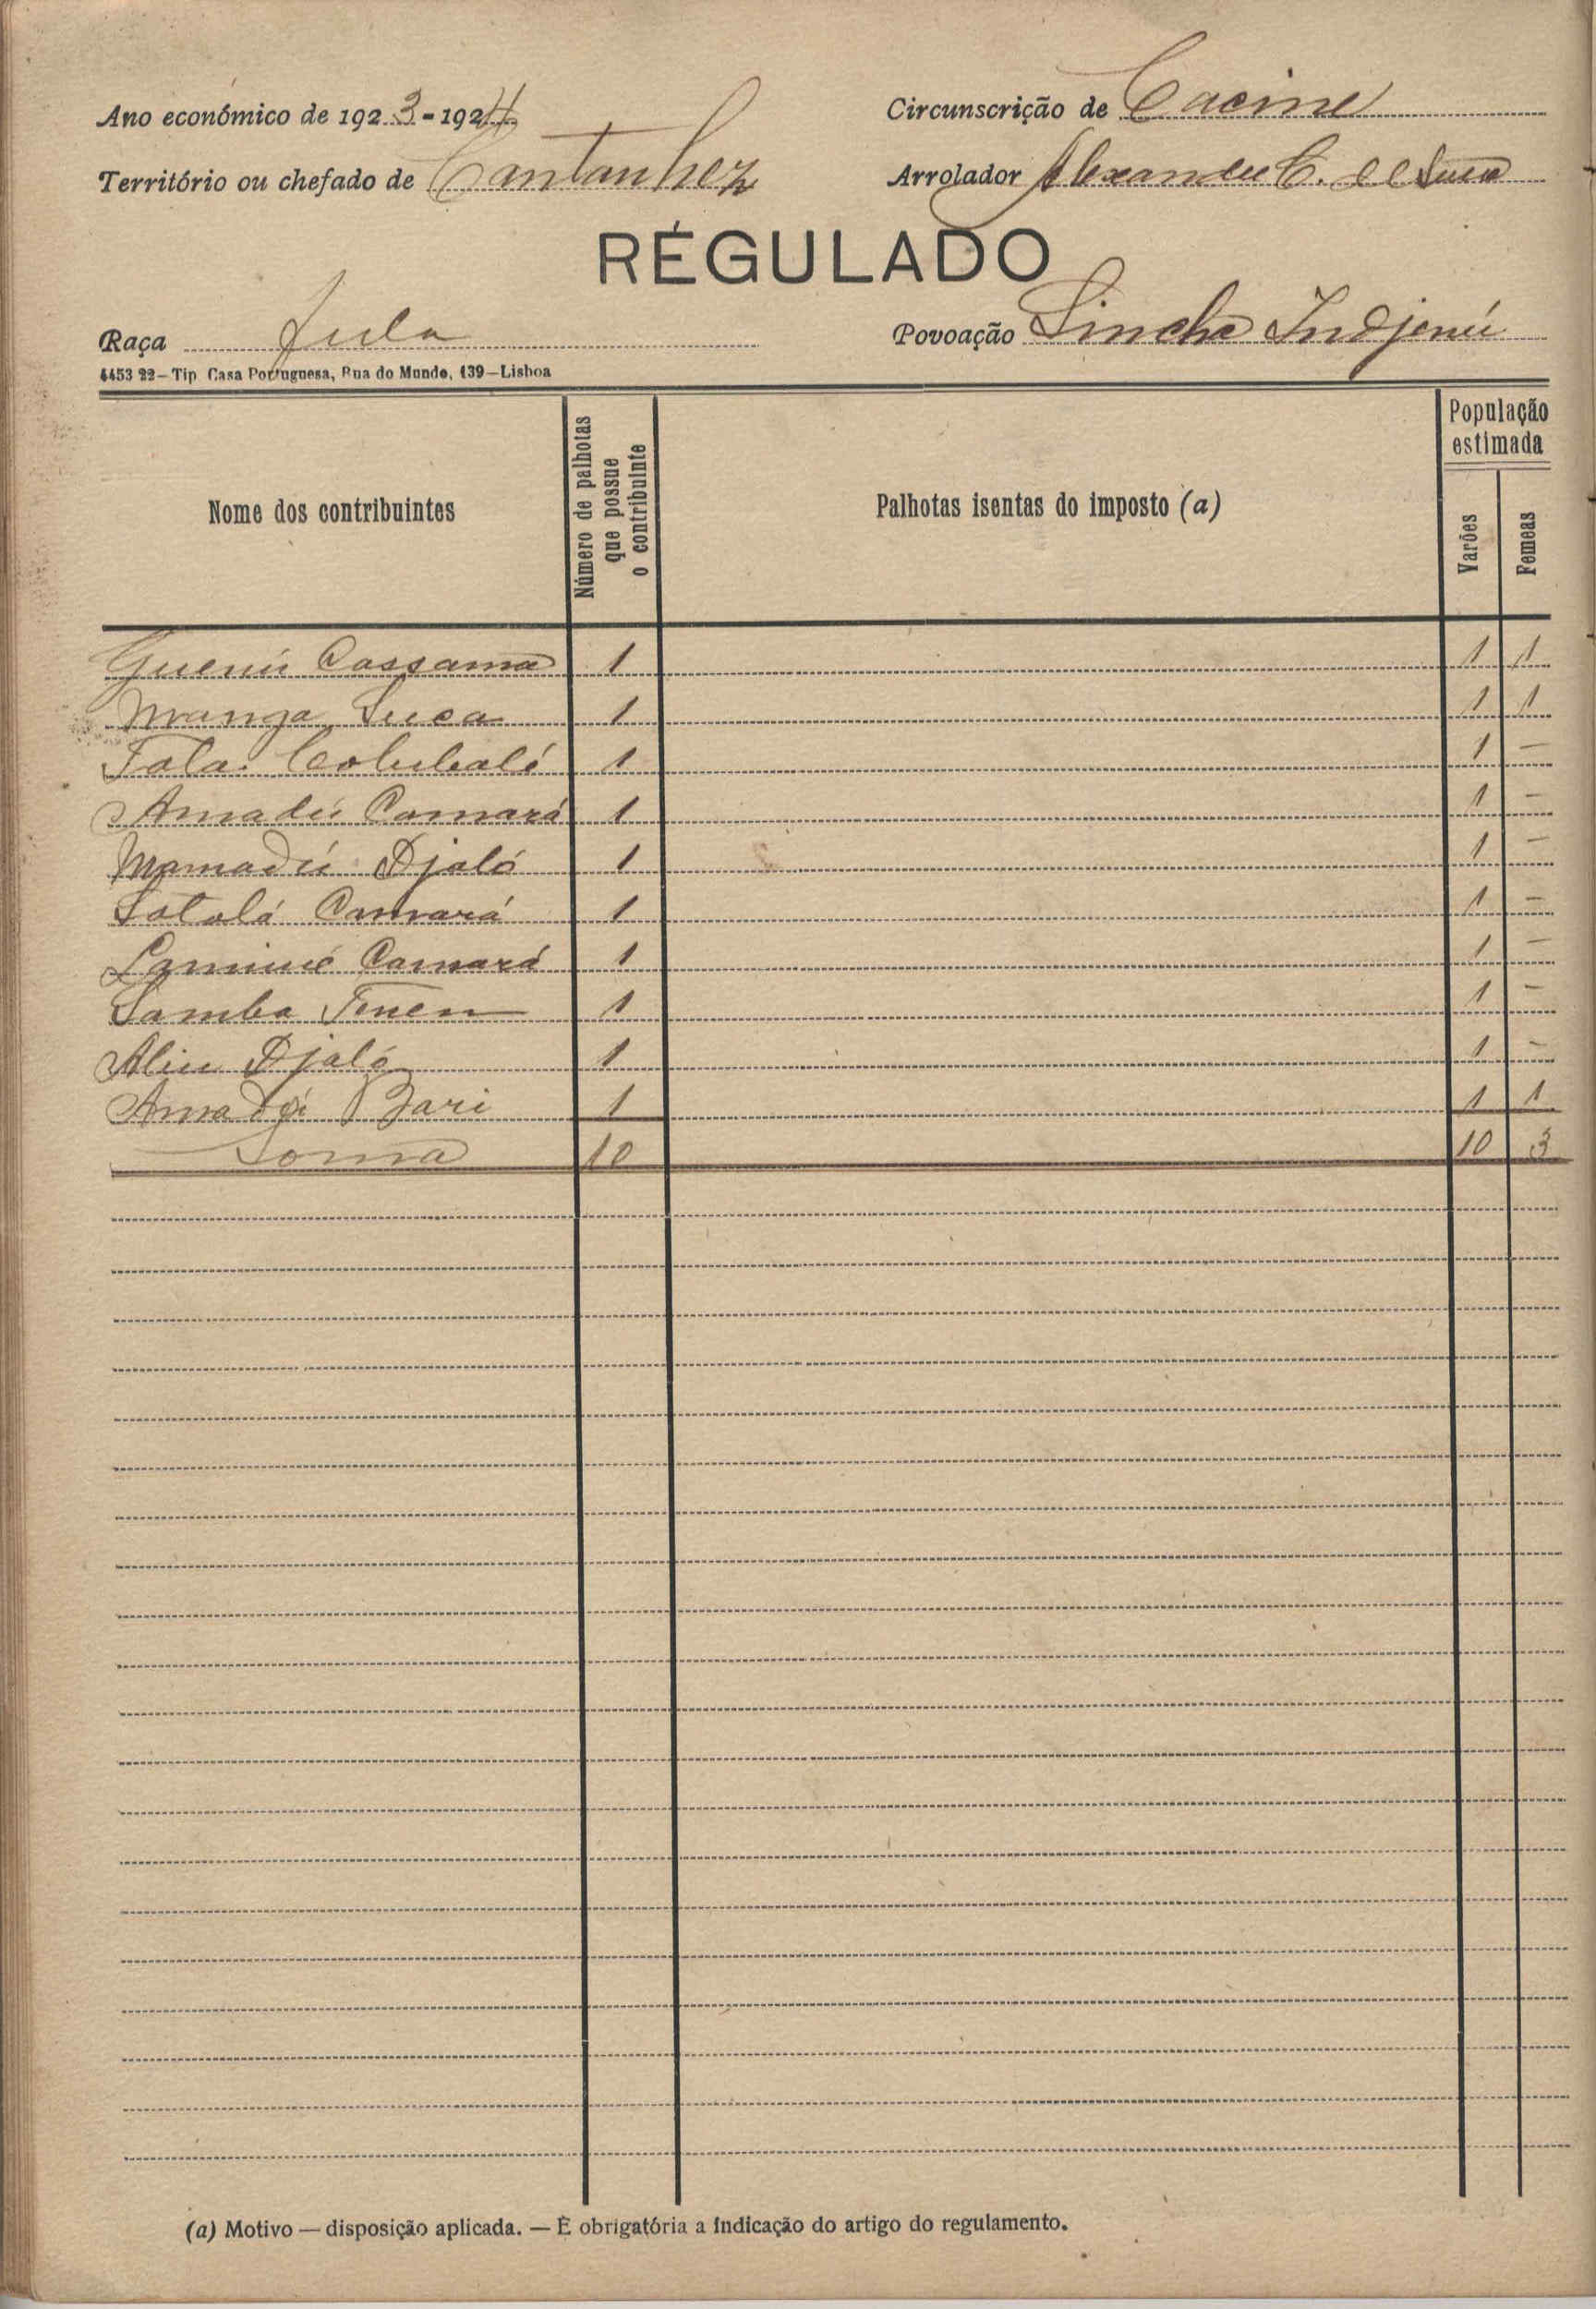 Ano económico de 1923-1924
Circunscrição de Cacine
Território ou chefado de Cantanhez
Arrolador Alexandre C. de
RÉGULADO
Raça Fula
Povoação Sincha Indjenú
4453 22—Tip Casa Portuguesa, Rua do Mundo, 139—Lisboa
Nome dos contribuintes
Número de palhotas
que possue
o contribuinte
Palhotas isentas do imposto (a)
População
estimada
Varões
Femeas
Guenú Cassama 1 1 1
Manga Suca 1 1 1
Fala Colubali 1 1 —
Amadú Camará 1 1 —
Mamadú Djaló 1 1 —
Camará 1 1 —
Laminé Camará 1 1 —
Samba Tenen 1 1 —
Aliu Djaló 1 1 —
Bari 1 1 1
Soma 10 10 3
(a) Motivo — disposição aplicada. — É obrigatória a indicação do artigo do regulamento.